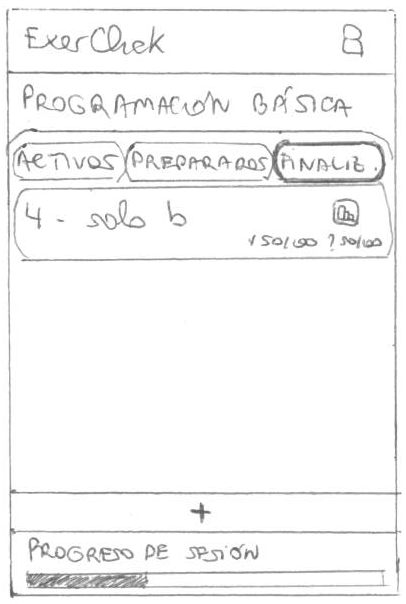 ExerChek
PROGRAMACIÓN BÁSICA
ACTIVOS PREPARADOS ANALIZ.
4 - solo b
✓50/100 ?50/100
+
PROGRESO DE SESIÓN